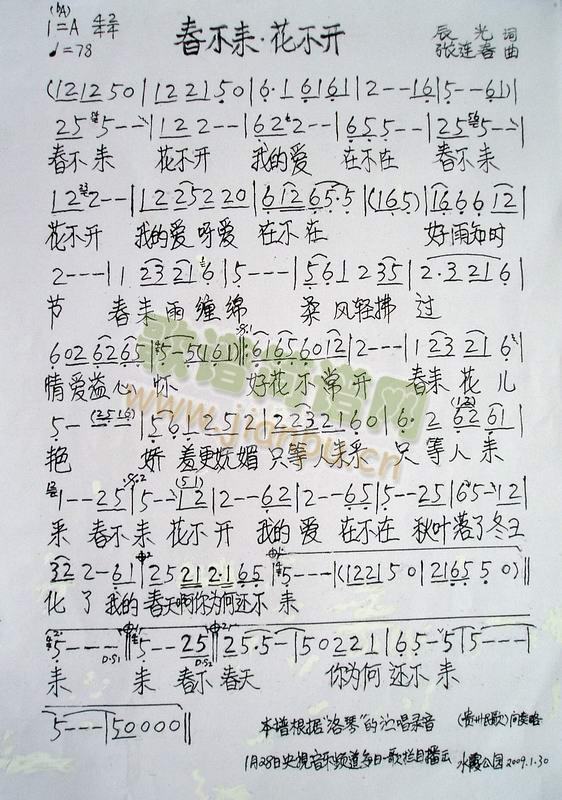 (♭A)
1=A 4/4 2/4
♩=78
春不来·花不开
辰光 词
张连春 曲
(1 2 1 2 5 0 | 1 2 2 1 5 0 | 6· 1 6 1 6 1 | 2 - - 1 6 | 5 - - 6 1)
2 5 5 - - | 1 2 2 - - | 6 2 2 - - | 6 5 5 - - | 2 5 5 - - |
春不来 花不开 我的爱 在不在 春不来
1 2 2 - - | 1 2 2 5 2 2 0 | 6 1 2 6 5 · 5 | (1 6 5) | 1 6 6 6 1 2 |
花不开 我的爱呀爱 在不在 好雨知时
2 - - - | 1 2 3 2 1 6 | 5 - - - | 5 6 1 2 3 5 | 2· 3 2 1 6 |
节 春来雨缠绵 柔风轻拂 过
6 0 2 6 2 6 5 | 5 - 5 (1 6 1) | 6 1 6 5 6 0 1 2 | 2 - - - | 1 2 3 2 1 6
情爱益心 怀 好花不常开 春来花儿
5 - - (2 5 1 6) | 5 6 1 2 5 2 | 2 2 3 2 1 6 0 | 6· 2 6 2 6 1 |
艳 娇羞更妩媚 只等人来采 只等人来
1 - - 2 5 | 5 - - 1 2 | 2 - - 6 2 | 2 - - 6 5 | 5 - - 2 5 | 6 5 - 1 2 |
采 春不来 花不开 我的爱 在不在 秋叶落了冬又
3 2 2 - 6 1 | 2 5 2 1 2·1 6 5 | 5 - - - | (1 2 2 1 5 0 | 2 1 6 5 5 0) ‖
化了我的春天啊你为何还不来
5 - - - D.S1 ‖ 5 - - 2 5 D.S2 ‖ 2 5·5 - | 5 0 2 2 1 | 6 5 - 5 | 5 - - - |
来 来 春不 春天 你为何 还不 来
5 - - - | 5 0 0 0 0 ‖
本谱根据"洛琴"的演唱录音 (贵州民歌) 间奏略
1月28日央视音乐频道每日一歌栏目播出 水霞公园 2009.1.30
歌谱简谱网
www.jianpu.cn